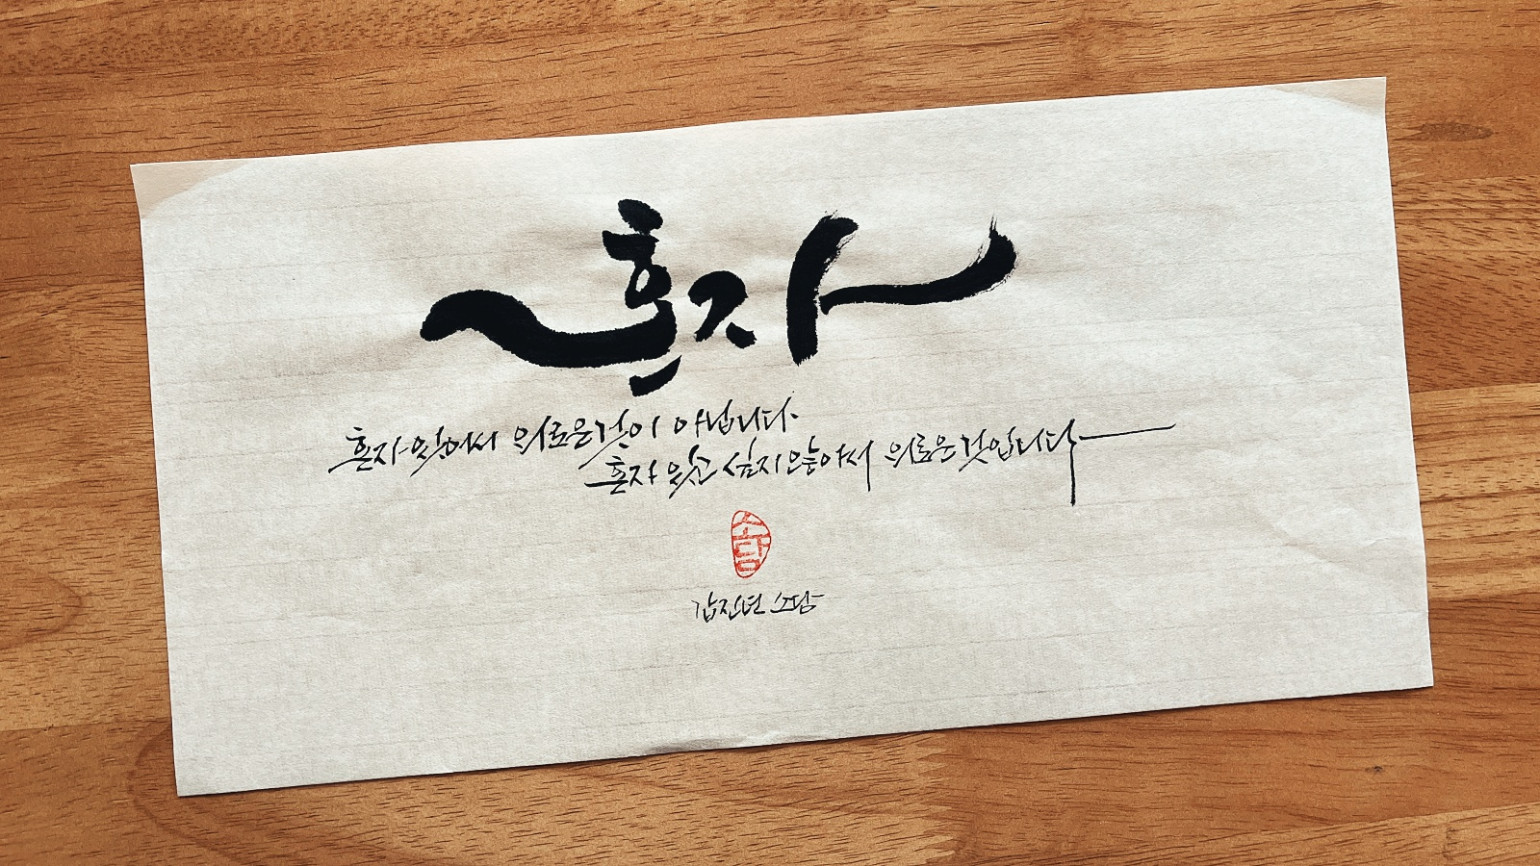 혼자
혼자 있어서 외로운 것이 아닙니다.
혼자 있고 싶지 않아서 외로운 것입니다
소담
갑진년 소담